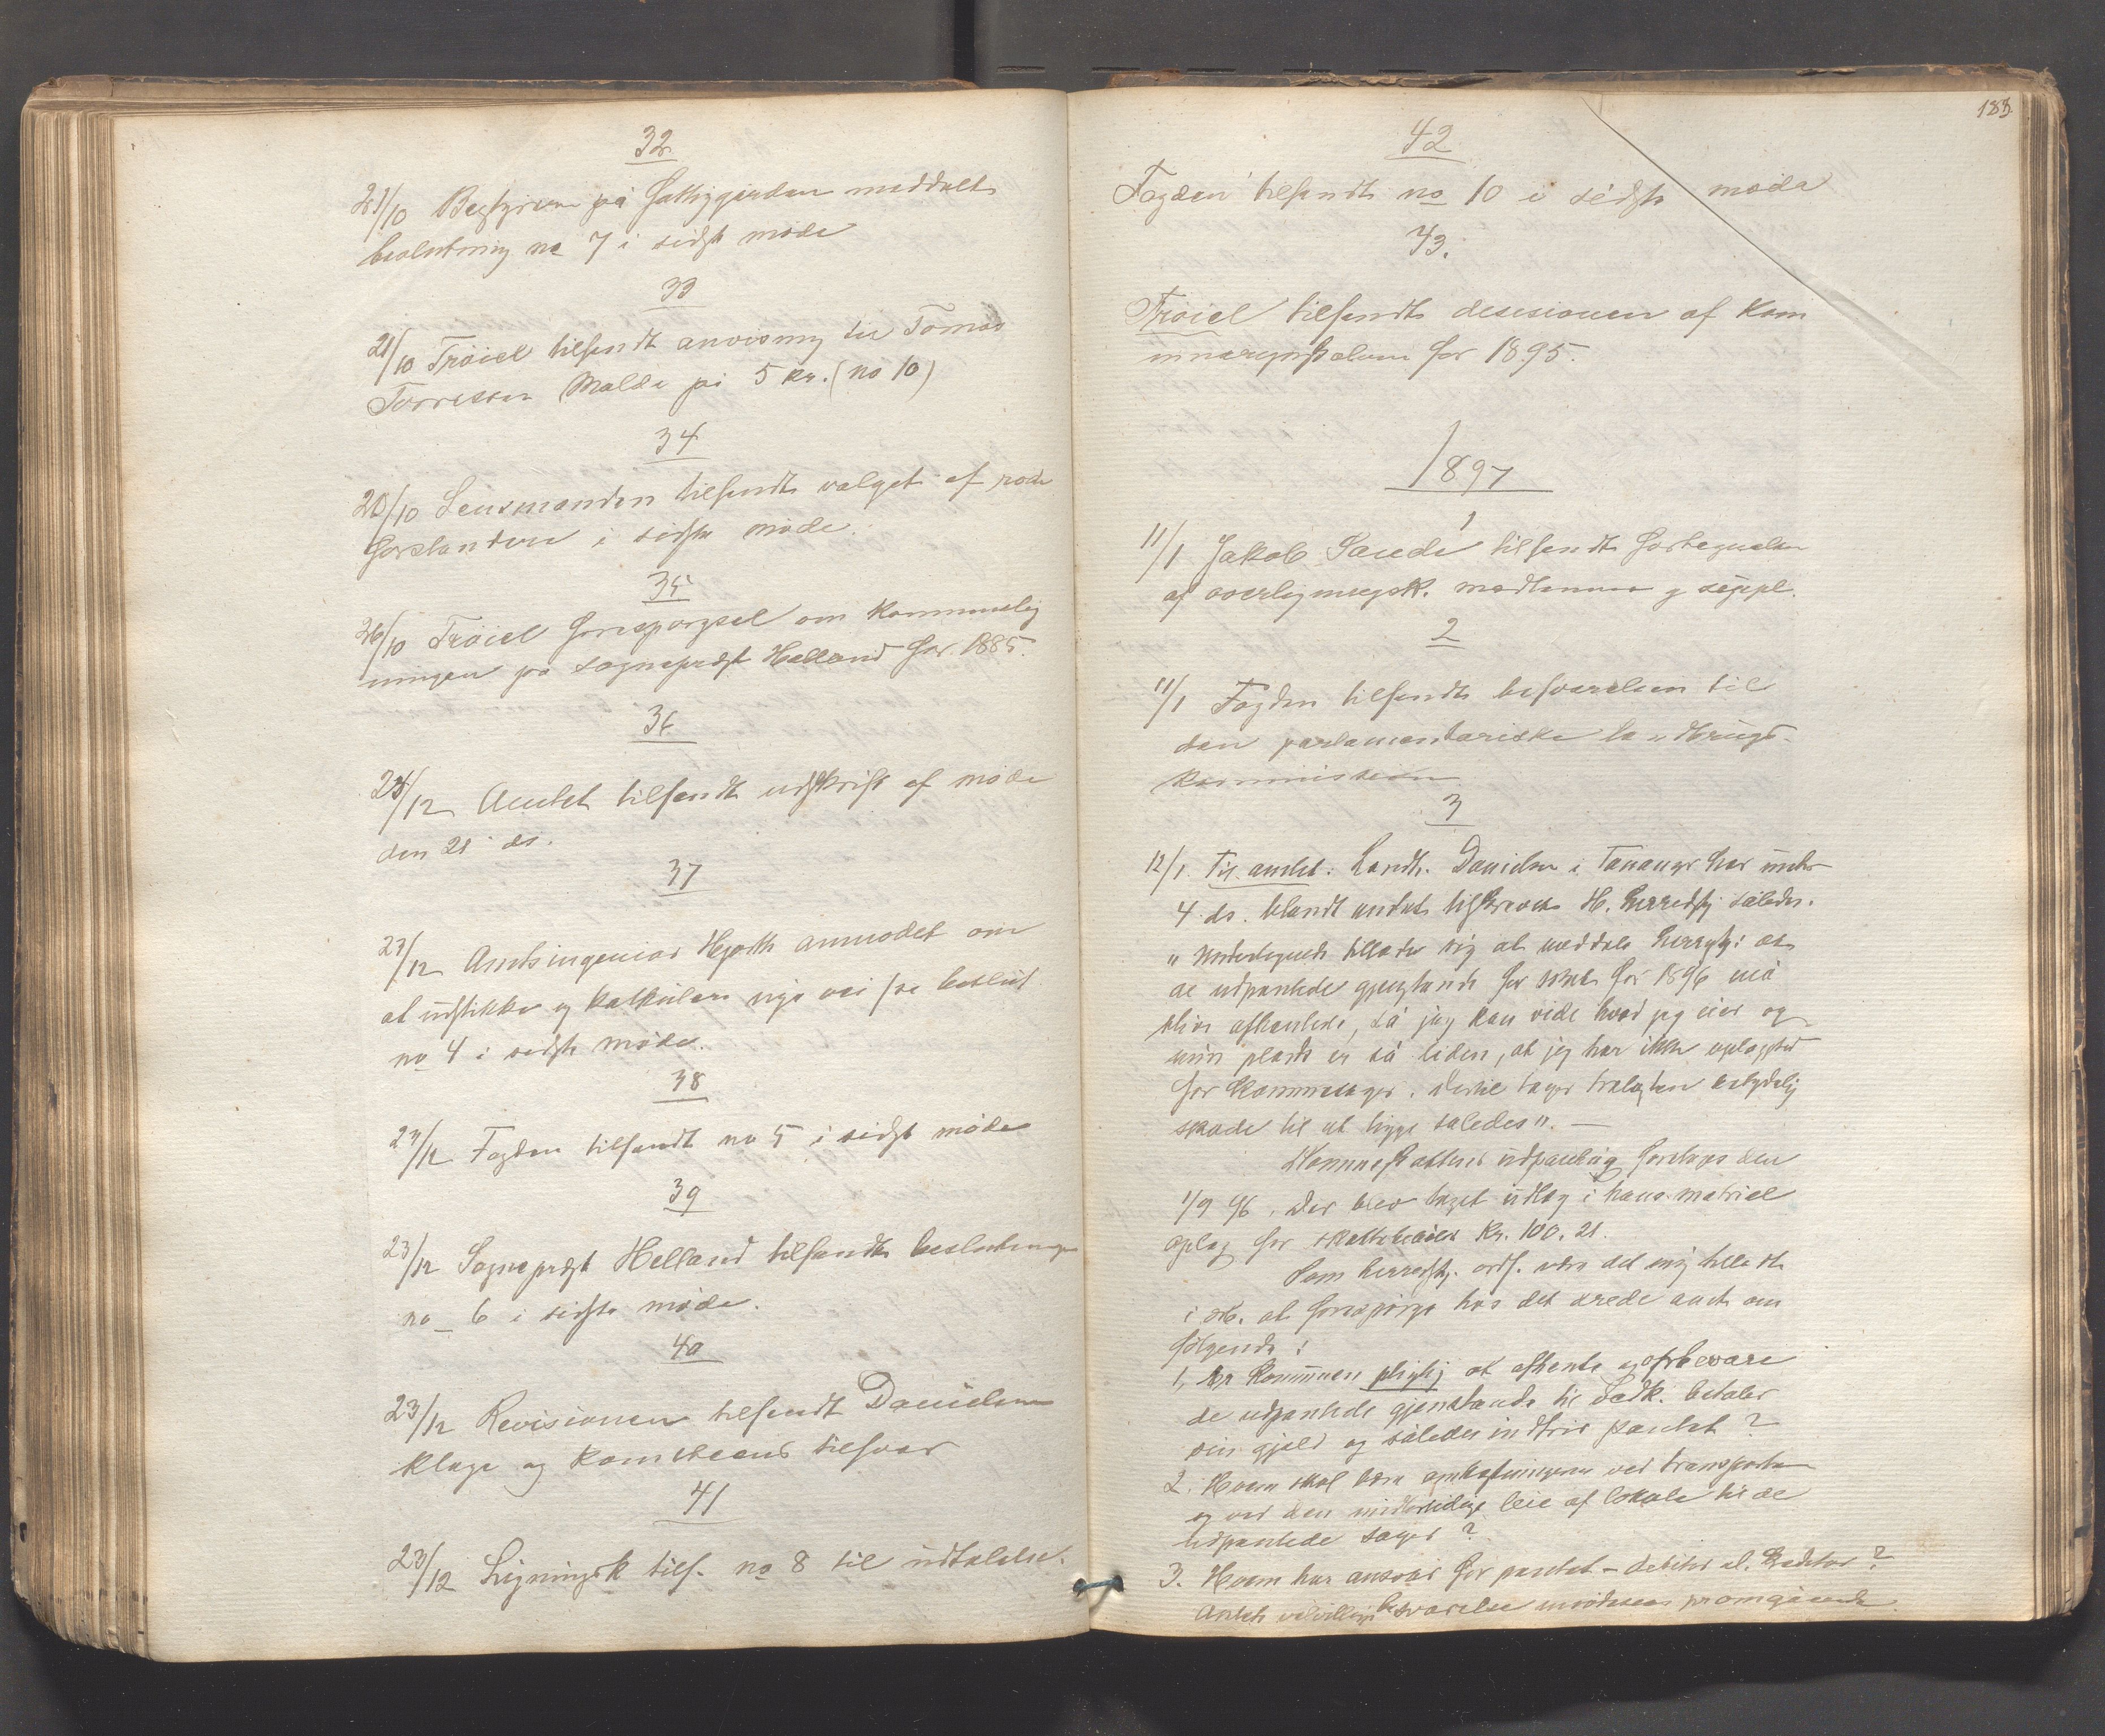 32
21/10 Bestyreren på Fattiggården meddelt
beslutning no 7 i sidste møde
33
21/10 Trøiel tilsendt anvisning til Tomas
Torresen Malde på 5 kr. (no 10)
34
20/10 Lensmanden tilsendt valget af rode
forstandere i sidste møde.
35
26/10 Trøiel forespørgsel om kommunelig
ningen på sogneprest Helland for 1885.
36
23/12 Amtet tilsendt udskrift af møde
den 21 ds.
37
23/12 Amtsingeniør Hjorth anmodet om
at udstikke og kalkulere nye vei se beslut
no 4 i sidste møde.
38
23/12 Fogden tilsendt no 5 i sidste møde
39
23/12 Sogneprest Helland tilsendt beslutningen
no 6 i sidste møde.
40
23/12 Revisionen tilsendt Danielsens
klage og kom tilsvar
41
23/12 Ligningsk tils. no 8 til udtalelse.
183
42
Fogden tilsendt no 10 i sidste møde
43.
Trøiel tilsendt desisionen af kom
muneregnskabern for 1895.
1897
1
11/1 Jakob Sande tilsendt fortegnelse
af overligningsk. medlemmer og suppl.
2
11/1 Fogden tilsendt besvarelsen til
den parlamentariske landbrugs-
kommission
3
12/1. Til amtet. Landh. Danielsen i Tananger har under
4 ds. blandt andet tilskrevet H. herredsst. således.
"Undertegnede tillader sig at meddele herredsst: at
de udpantede gjenstande for skat for 1896 må
blive afhentede, så jeg kan vide hvad jeg eier og
min plads er så liden, at jeg har ikke oplagsted
for kommunesager. Dertil tager betydelig
skade til at ligge således". —
Kommuneskattens udpanting foretoges den
1/9 96. Der blev taget udlæg i hans matriel
oplag for skattebeløbet Kr. 100.21.
Som herredsst. ordf. være det mig tilladt
i at forespørge hos det ærede amt om
følgende:
1, Er kommunen pligtig at afhente og opbevare
de udpantede gjenstande til Vedk. betaler
sin gjeld og således indfrir pantet?
2. Hvem skal bære omkostningerne ved transporten
og ved den midlertidige leie af lokale til de
udpantede sager?
3. Hvem har ansvar for pantet – debitor el. kreditor?
Amtets velvillige besvarelse imødesees promgående.